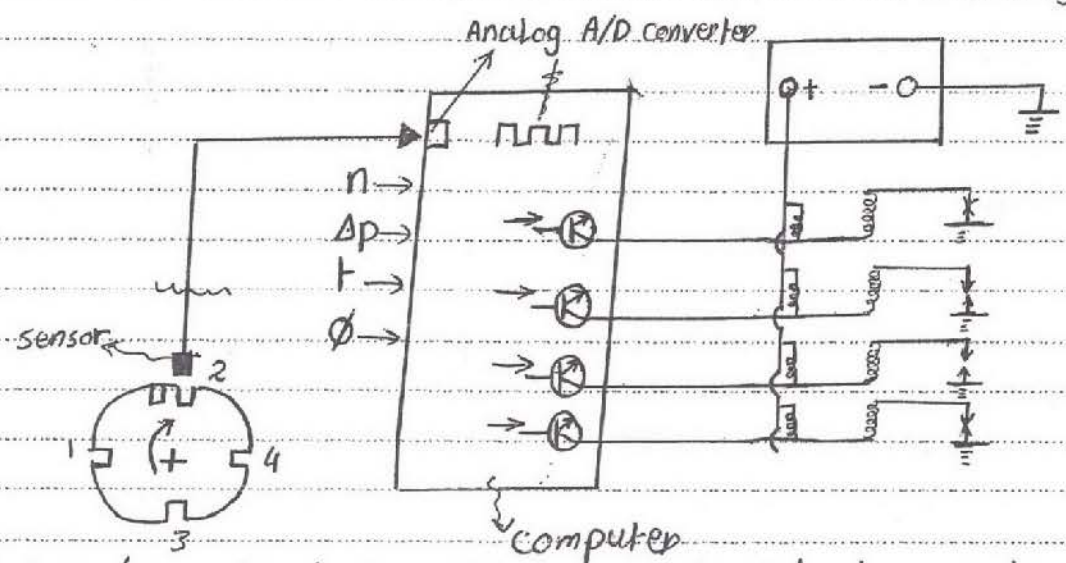 Analog A/D converter
+ -
n
Δp
t
Ø
sensor
2
1 + 4
3
computer